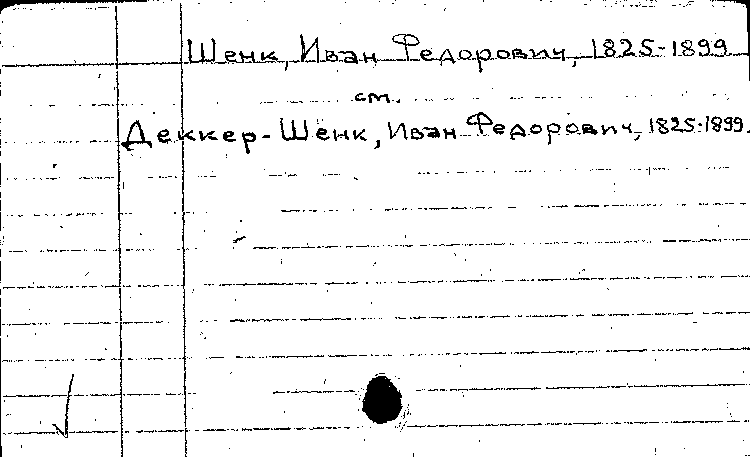 Шенк, Иван Федорович, 1825-1899
см.
Деккер-Шенк, Иван Федорович, 1825-1899.